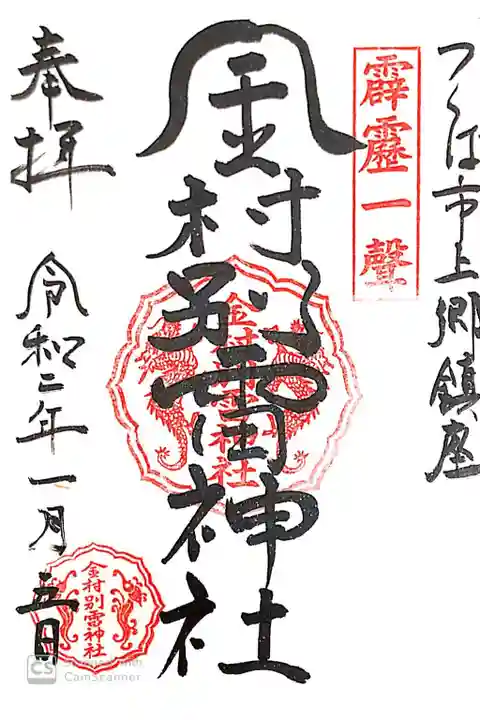 つくば市上郷鎮座
霹靂一聲
金村別雷神社
金村別雷神社
奉拝
令和二年一月五日
金村別雷神社
CS CamScanner